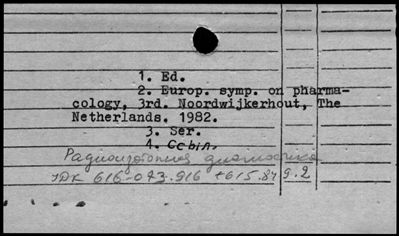 1. Ed.
2. Europ. symp. on pharma-
cology, 3rd. Noordwijkerhout, The
Netherlands. 1982.
3. Ser.
4. Ссыл.
Радиоизотопная диагностика
УДК 616-073.916 +615.849.2